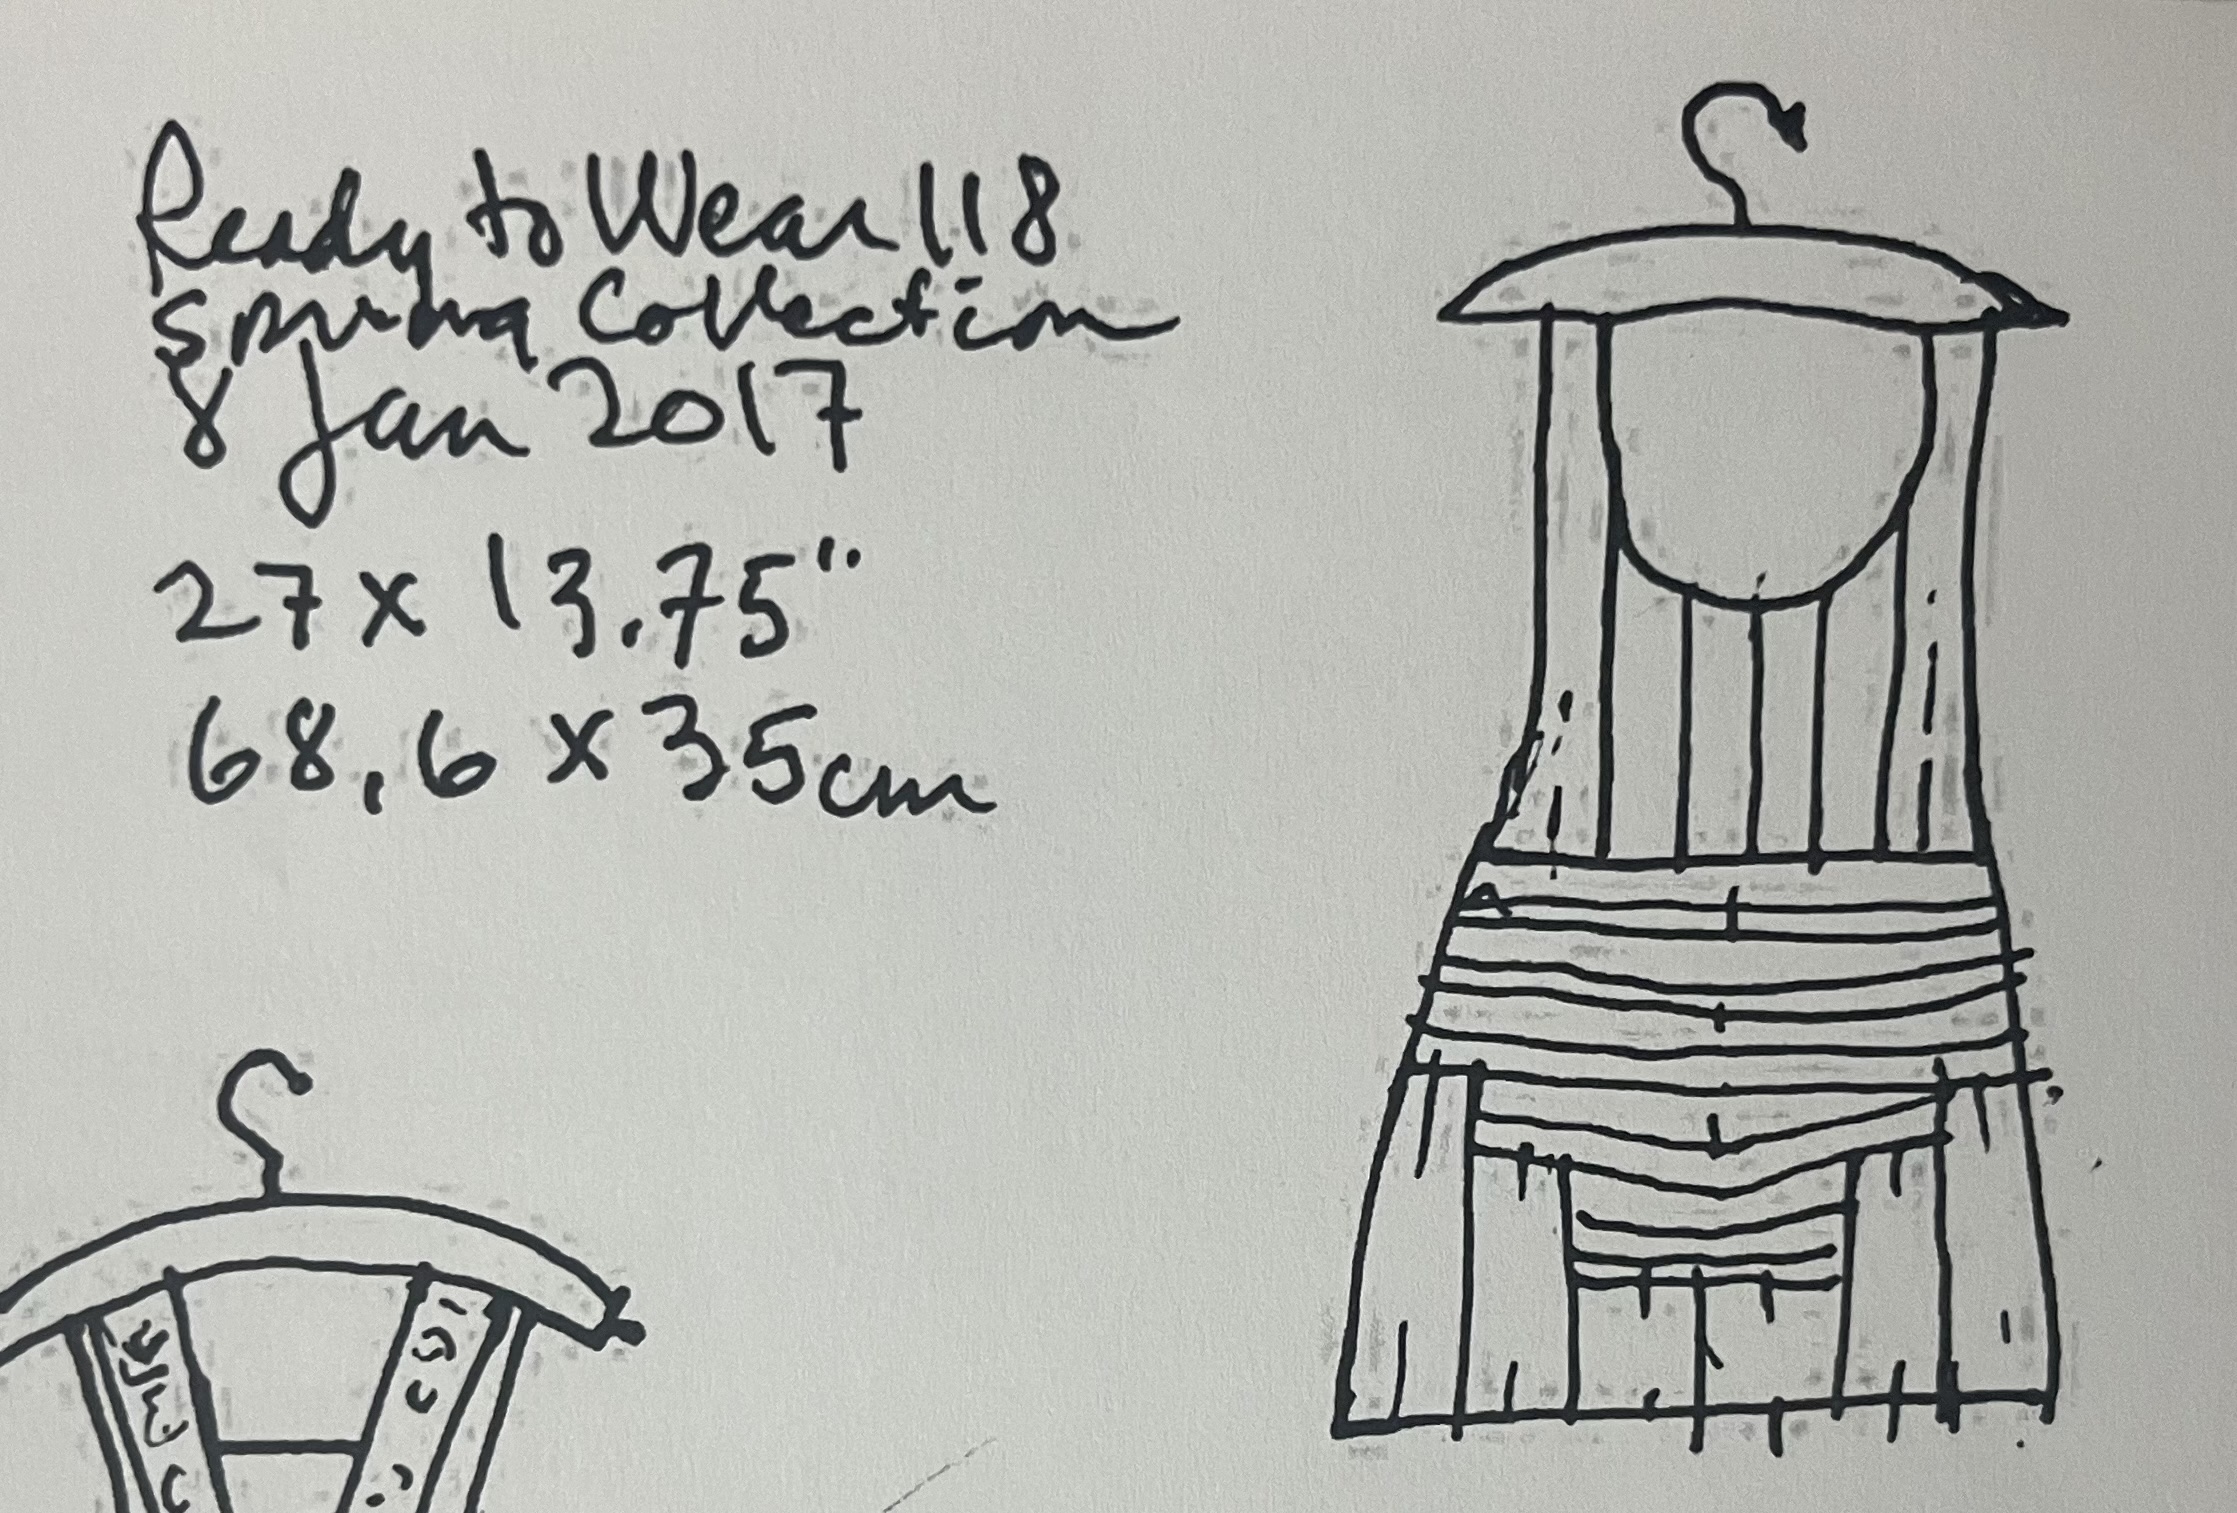 Ready to Wear 118
Spring Collection
8 Jan 2017
27 x 13.75"
68.6 x 35cm